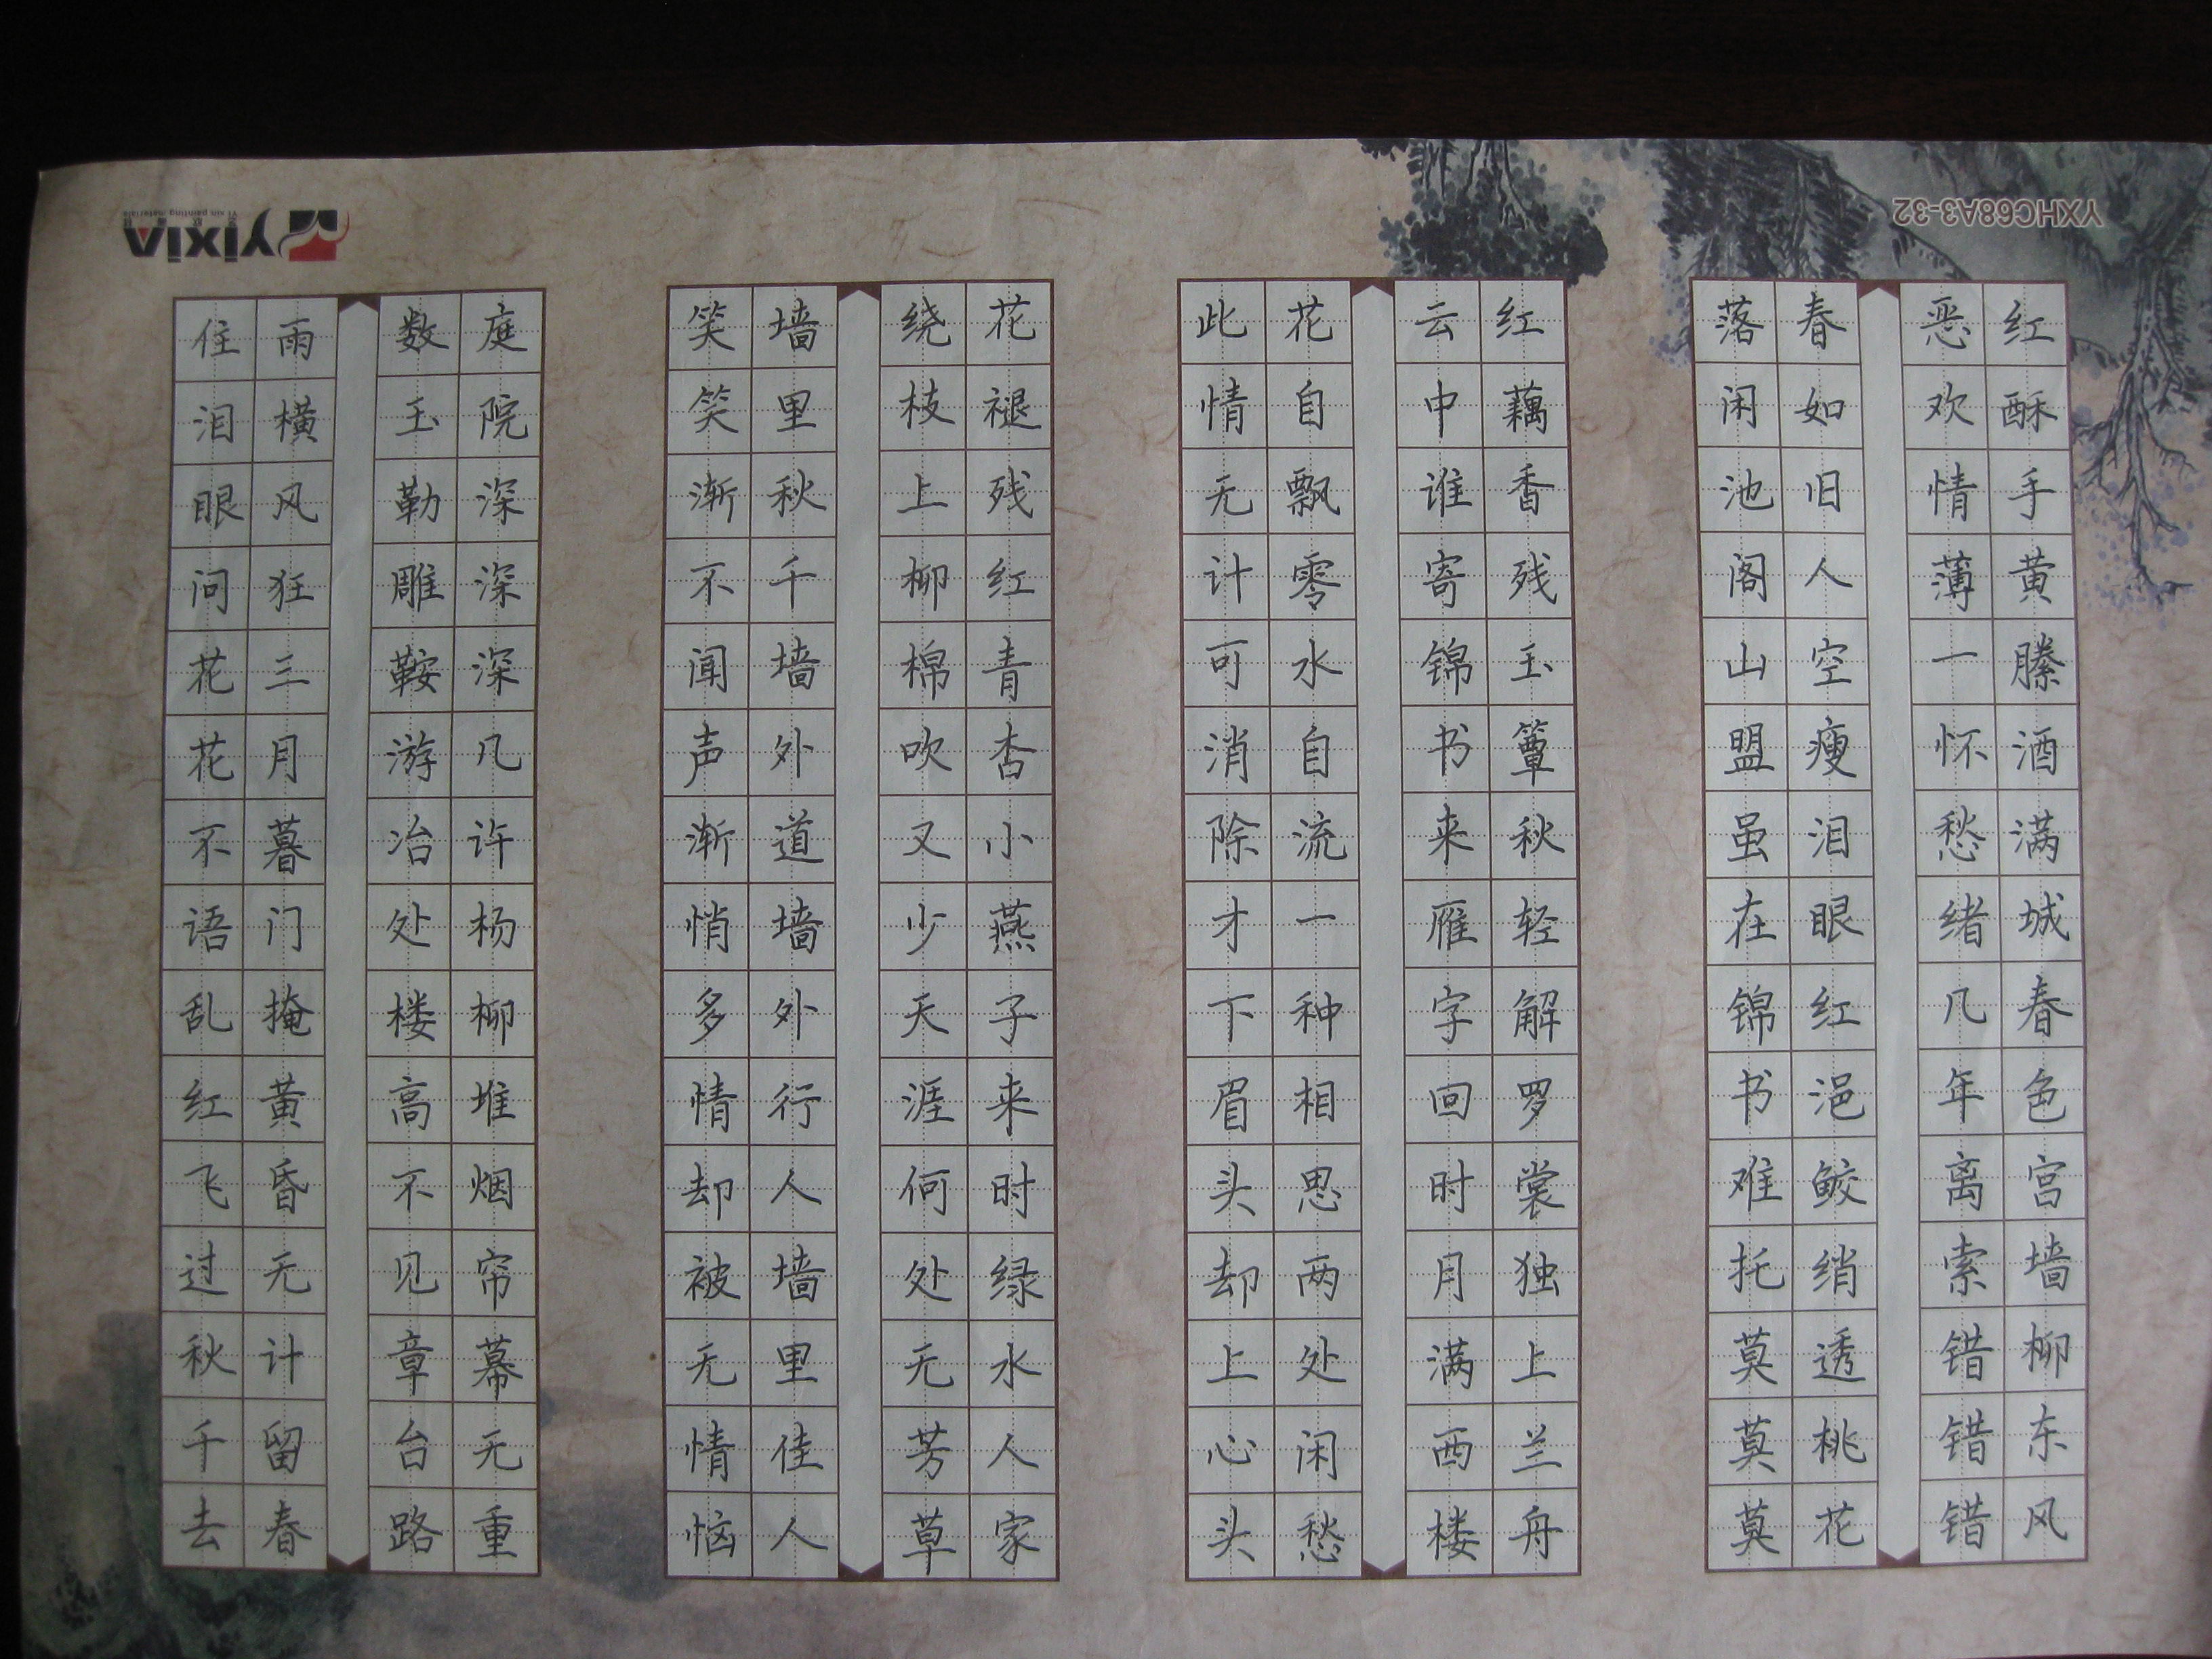 红酥手黄滕酒满城春色宫墙柳东风
恶欢情薄一怀愁绪几年离索错错错
春如旧人空瘦泪眼红浥鲛绡透桃花
落闲池阁山盟虽在锦书难托莫莫莫
红藕香残玉簟秋轻解罗裳独上兰舟
云中谁寄锦书来雁字回时月满西楼
花自飘零水自流一种相思两处闲愁
此情无计可消除才下眉头却上心头
花褪残红青杏小燕子来时绿水人家
绕枝上柳棉吹又少天涯何处无芳草
墙里秋千墙外道墙外行人墙里佳人
笑笑渐不闻声渐悄多情却被无情恼
庭院深深深几许杨柳堆烟帘幕无重
数玉勒雕鞍游冶处楼高不见章台路
雨横风狂三月暮门掩黄昏无计留春
住泪眼问花花不语乱红飞过秋千去
YXHC68A3-32
YiXiN
Yi xin painting materials